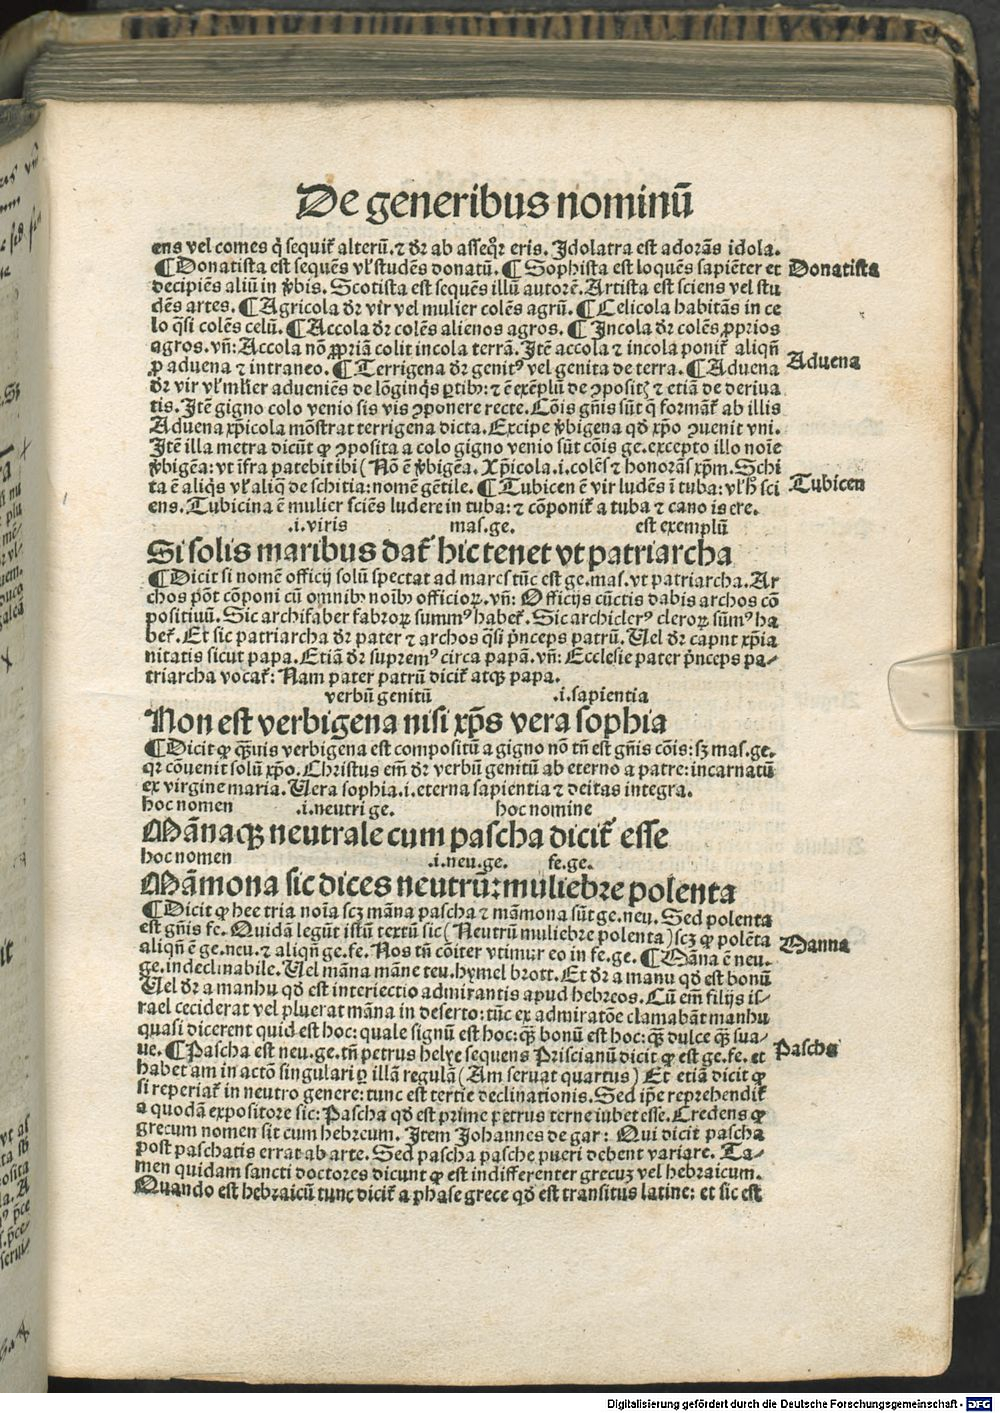 De generibus nominū
ens vel comes q̇ sequit᷑ alterū. ⁊ dr̄ ab asseqͦr eris. Idolatra est adorās idola.
¶ Donatista est sequēs vl̓ studēs donatū. ¶ Sophista est loquēs sapiēter et
Donatista
decipiēs aliū in v̓bis. Scotista est sequēs illū autorē. Artista est sciens vel stu
dēs artes. ¶ Agricola dr̄ vir vel mulier colēs agrū. ¶ Celicola habitās in ce
lo q̄si colēs celū. ¶ Accola dr̄ colēs alienos agros. ¶ Incola dr̄ colēs ꝓprios
agros. vn̄: Accola nō ꝓpriā colit incola terrā. Itē accola ⁊ incola ponit᷑ aliqn̄
ꝓ aduena ⁊ intraneo. ¶ Terrigena dr̄ genitꝰ vel genita de terra. ¶ Aduena
Aduena
dr̄ vir vl̓ mĺier adueniēs de lōginq̇s ꝑtibꝫ: ⁊ ē exēplū de ꝯpositꝭ ⁊ etiā de deriua
tis. Itē gigno colo venio sis vis ꝯponere recte. Cōis gn̄is sūt q̄ formāt᷑ ab illis
Aduena xp̄icola mōstrat terrigena dicta. Excipe v̓bigena qd̄ xp̄o ꝯuenit vni.
Itē illa metra dicūt ꝙ ꝯposita a colo gigno venio sūt cōis ge. excepto illo noīe
v̓bigēa: vt īfra patebit ibi (Nō ē v̓bigēa. Xp̄icola .i. colēs ⁊ honorās xp̄m. Schi
ta ē aliq̇s vl̓ aliq̄ de schitia: nomē gētile. ¶ Tubicen ē vir ludēs ī tuba: vl̓ hꝫ sci
Tubicen
ens. Tubicina ē mulier sciēs ludere in tuba: ⁊ cōponit᷑ a tuba ⁊ cano is ere.
.i. viris mas. ge. est exemplū
Si solis maribus dat᷑ hic tenet vt patriarcha
¶ Dicit si nomē officij solū spectat ad mares tūc est ge. mas. vt patriarcha. Ar
chos pōt cōponi cū omnibꝫ noībꝫ officioꝝ. vn̄: Officijs cūctis dabis archos cō
positiuū. Sic archifaber fabroꝝ summꝰ habet᷑. Sic archiclerꝰ cleroꝝ sūmꝰ ha
bet᷑. Et sic patriarcha dr̄ pater ⁊ archos q̄si p̄nceps patrū. Uel dr̄ caput xp̄ia
nitatis sicut papa. Etiā dr̄ supremꝰ circa papā. vn̄: Ecclesie pater p̄nceps pa-
triarcha vocat᷑: Nam pater patrū dicit᷑ atqꝫ papa.
verbū genitū .i. sapientia
Non est verbigena nisi xp̄s vera sophia
¶ Dicit ꝙ q̄uis verbigena est compositū a gigno nō tn̄ est gn̄is cōis: sꝫ mas. ge.
qꝛ cōuenit solū xp̄o. Christus em̄ dr̄ verbū genitū ab eterno a patre: incarnatū
ex virgine maria. Uera sophia .i. eterna sapientia ⁊ deitas integra.
hoc nomen .i. neutri ge. hoc nomine
Mānaqꝫ neutrale cum pascha dicit᷑ esse
hoc nomen .i. neu. ge. fe. ge.
Māmona sic dices neutrū: muliebre polenta
¶ Dicit ꝙ hec tria noīa scꝫ māna pascha ⁊ māmona sūt ge. neu. Sed polenta
est gn̄is fe. Quidā legūt istū textū sic (Neutrū muliebre polenta) scꝫ ꝙ polēta
aliqn̄ ē ge. neu. ⁊ aliqn̄ ge. fe. Nos tn̄ cōiter vtimur eo in fe. ge. ¶ Māna ē neu.
Manna
ge. indeclinabile. Uel māna māne teu. hymel brott. Et dr̄ a manu qd̄ est bonū
Uel dr̄ a manhu qd̄ est interiectio admirantis apud hebreos. Cū em̄ filijs is-
rael ceciderat vel pluerat māna in deserto: tūc ex admiratōe clamabāt manhu
quasi dicerent quid est hoc: quale signū est hoc: q̄ꝫ bonū est hoc: q̄ꝫ dulce q̄ꝫ sua-
ue. ¶ Pascha est neu. ge. tn̄ petrus helye sequens Priscianū dicit ꝙ est ge. fe. et
Pascha
habet am in actō singulari ꝑ illā regulā (Am seruat quartus) Et etiā dicit ꝙ
si reperiat᷑ in neutro genere: tunc est tertie declinationis. Sed ip̄e reprehendit᷑
a quodā expositore sic: Pascha qd̄ est prime petrus terne iubet esse. Credens ꝙ
grecum nomen sit cum hebreum. Item Johannes de gar: Qui dicit pascha
post paschatis errat ab arte. Sed pascha pasche pueri debent variare. Ta-
men quidam sancti doctores dicunt ꝙ est indifferenter grecuꝫ vel hebraicum.
Quando est hebraicū tunc dicit᷑ a phase grece qd̄ est transitus latine: et sic est
Digitalisierung gefördert durch die Deutsche Forschungsgemeinschaft - DFG